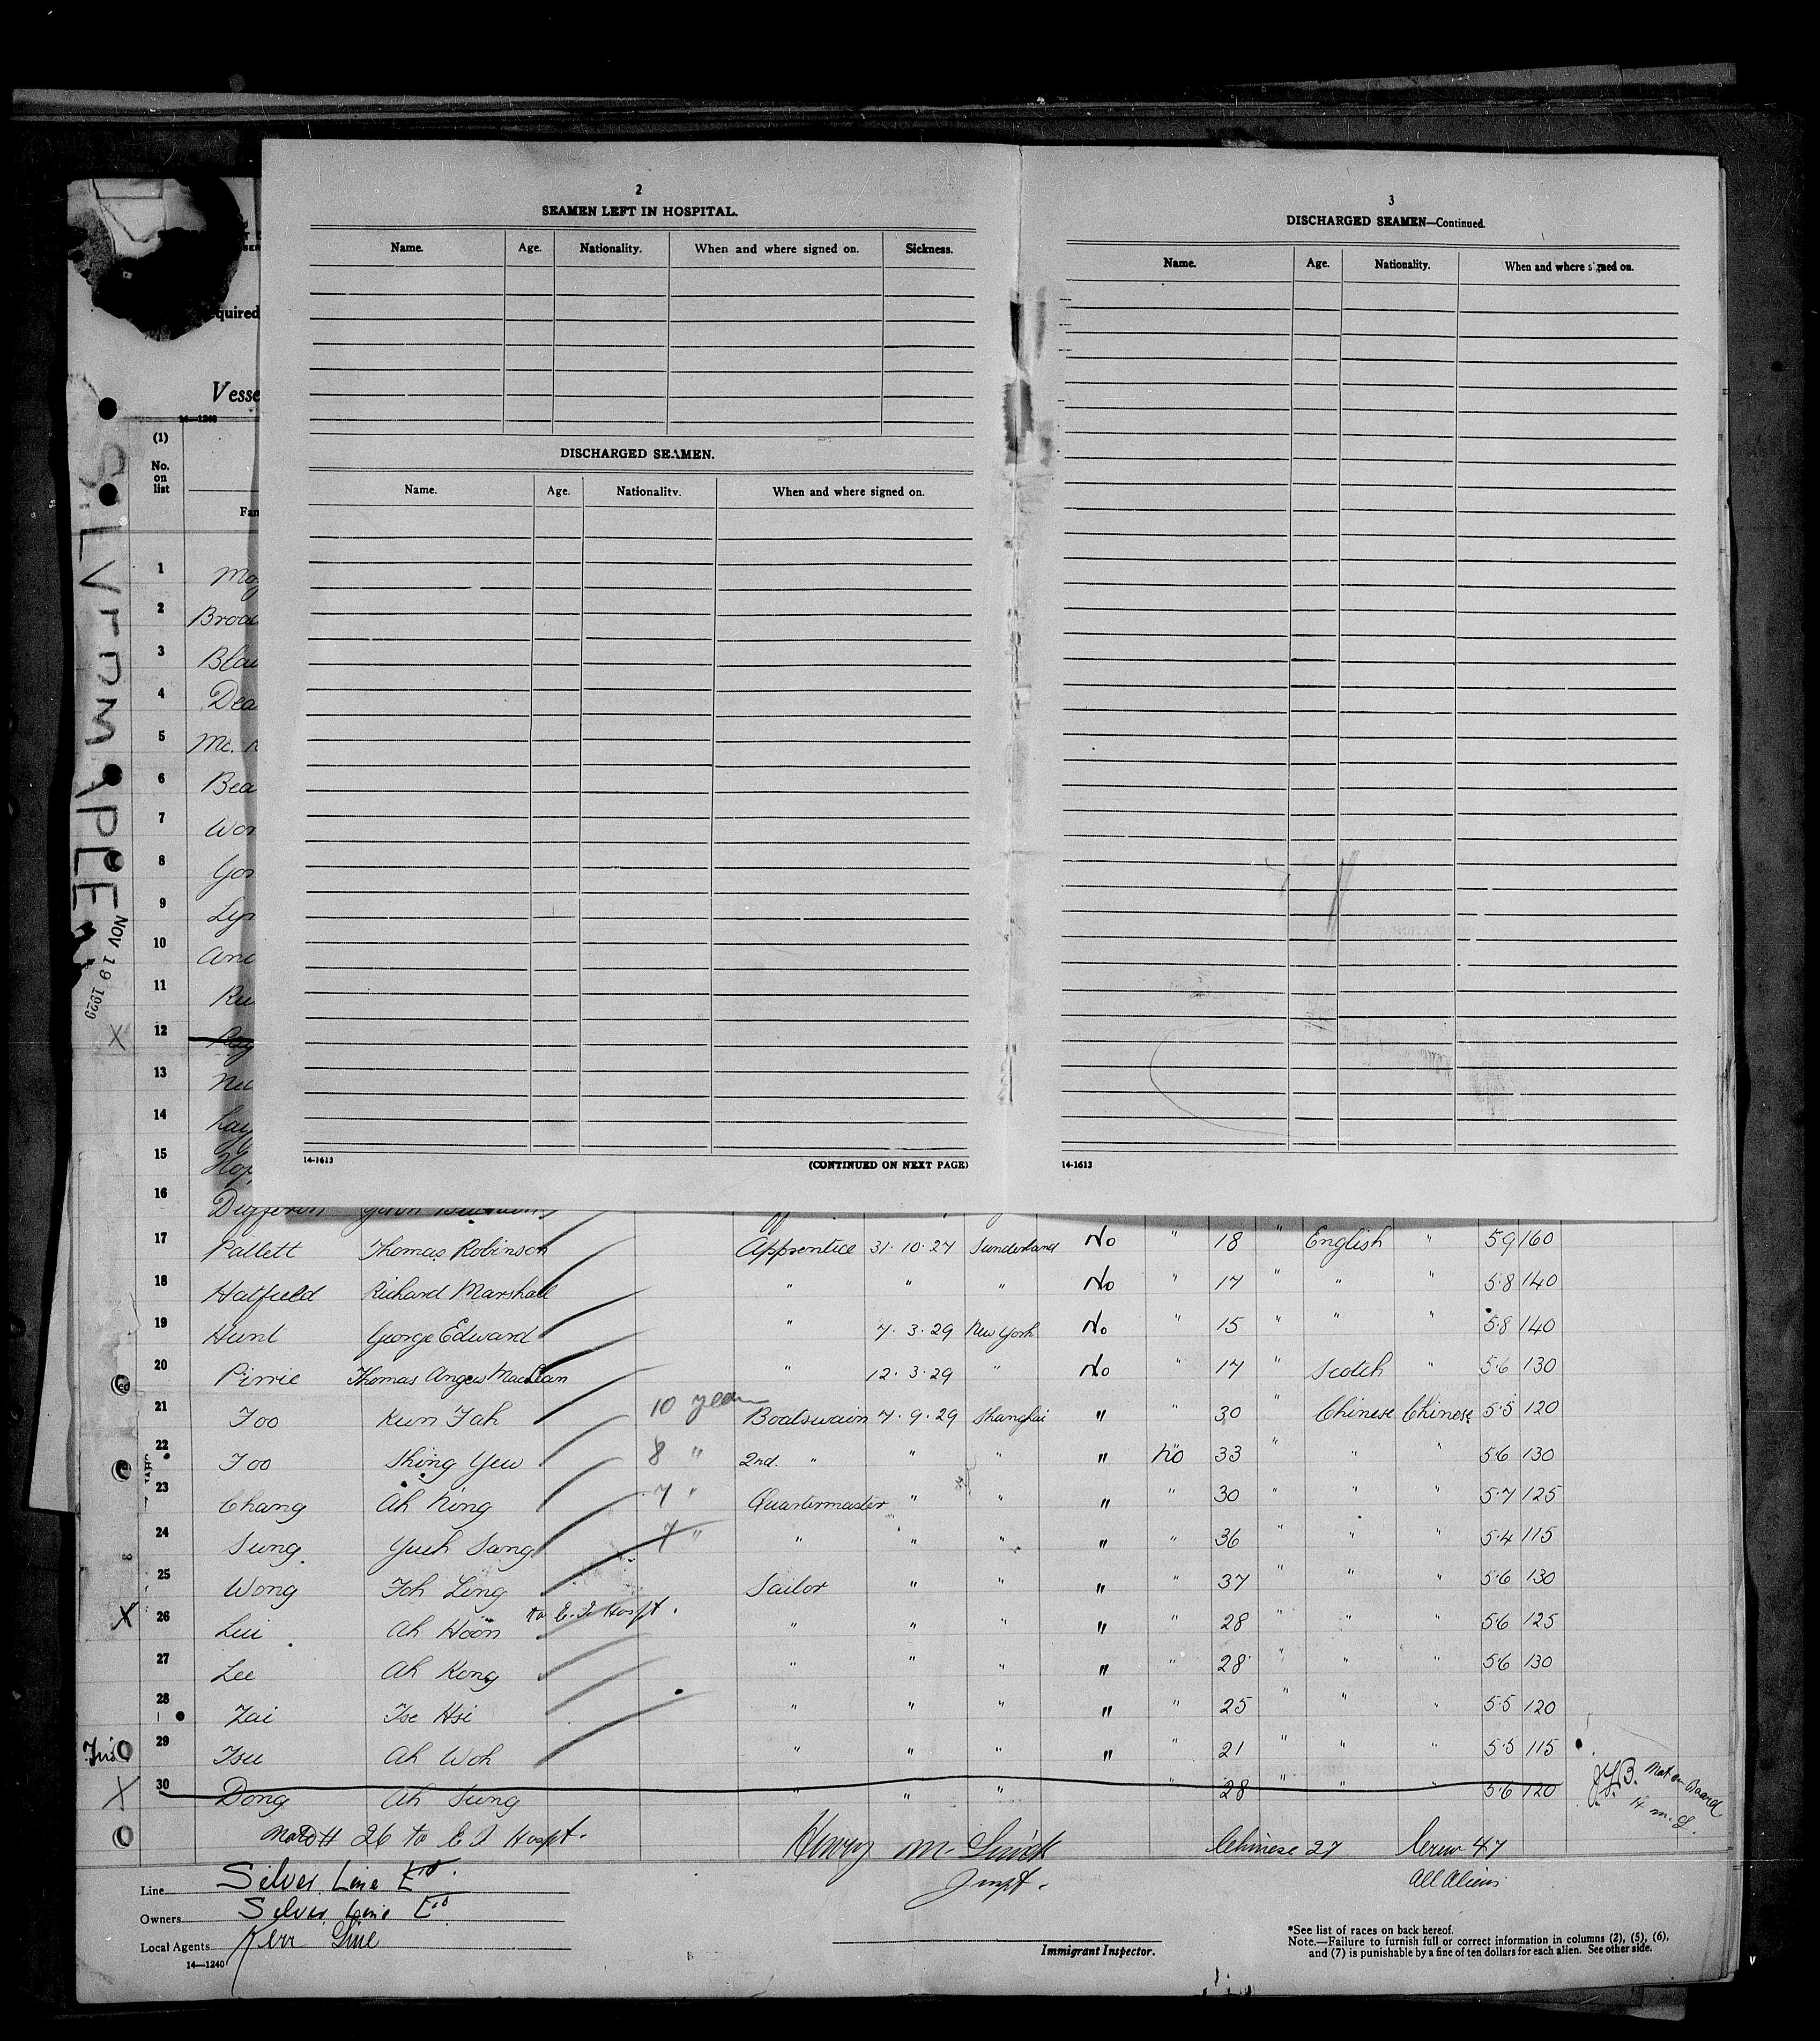 2
SEAMEN LEFT IN HOSPITAL.
Name. Age. Nationality. When and where signed on. Sickness.
DISCHARGED SEAMEN.
Name. Age. Nationality. When and where signed on.
14-1613 (CONTINUED ON NEXT PAGE)
3
DISCHARGED SEAMEN—Continued.
Name. Age. Nationality. When and where signed on.
14-1613
quired
Vesse
14—1240
(1)
No.
on
list
Fam
SILVERMAPLE
NOV 19 1929
1
2 Broa
3 Blai
4 Dea
5 Mc.
6 Bea
7 Wor
8 Gor
9 Lyn
10 And
11 Ru
X 12
13
14 Lay
15 Hop
16 Dufferin John
17 Pallett Thomas Robinson Apprentice 31.10.27 Sunderland No " 18 " English " 5.9 160
18 Hatfield Richard Marshall " " " No " 17 " " " 5.8 140
19 Hunt George Edward " 7.3.29 New York No " 15 " " " 5.8 140
20 Pirrie Thomas Angus MacLean " 12.3.29 " No " 17 " Scotch " 5.6 130
21 Foo Kun Fah 10 years Boatswain 7.9.29 Shanghai " " 30 " Chinese Chinese 5.5 120
22 Foo Shing Yew 8 " 2nd. " " " " no 33 " " " 5.6 130
23 Chang Ah Ning 7 " Quartermaster " " " " 30 " " " 5.7 125
24 Sung Yueh Sang 7 " " " " " " 36 " " " 5.4 115
25 Wong Foh Ling Sailor " " " " 37 " " " 5.6 130
X 26 Lui Ah Hoon to E.I. Hospt. " " " " " 28 " " " 5.6 125
27 Lee Ah Kong " " " " " 28 " " " 5.6 130
28 Zai Tse Hsi " " " " " 25 " " " 5.5 120
29 Tsu Ah Woh " " " " " 21 " " " 5.5 115
X 30 Dong Ah Sung " " " " 28 " " " 5.6 120 Not on Board
# 26 to E I Hospt. Henry M. Chinese 27 Crew 47
Inspt. All Aliens
Line Silver Line Ltd.
Owners Silver Line Ltd
Local Agents Kerr Line
14—1240
Immigrant Inspector.
*See list of races on back hereof.
Note.—Failure to furnish full or correct information in columns (2), (5), (6),
and (7) is punishable by a fine of ten dollars for each alien. See other side.